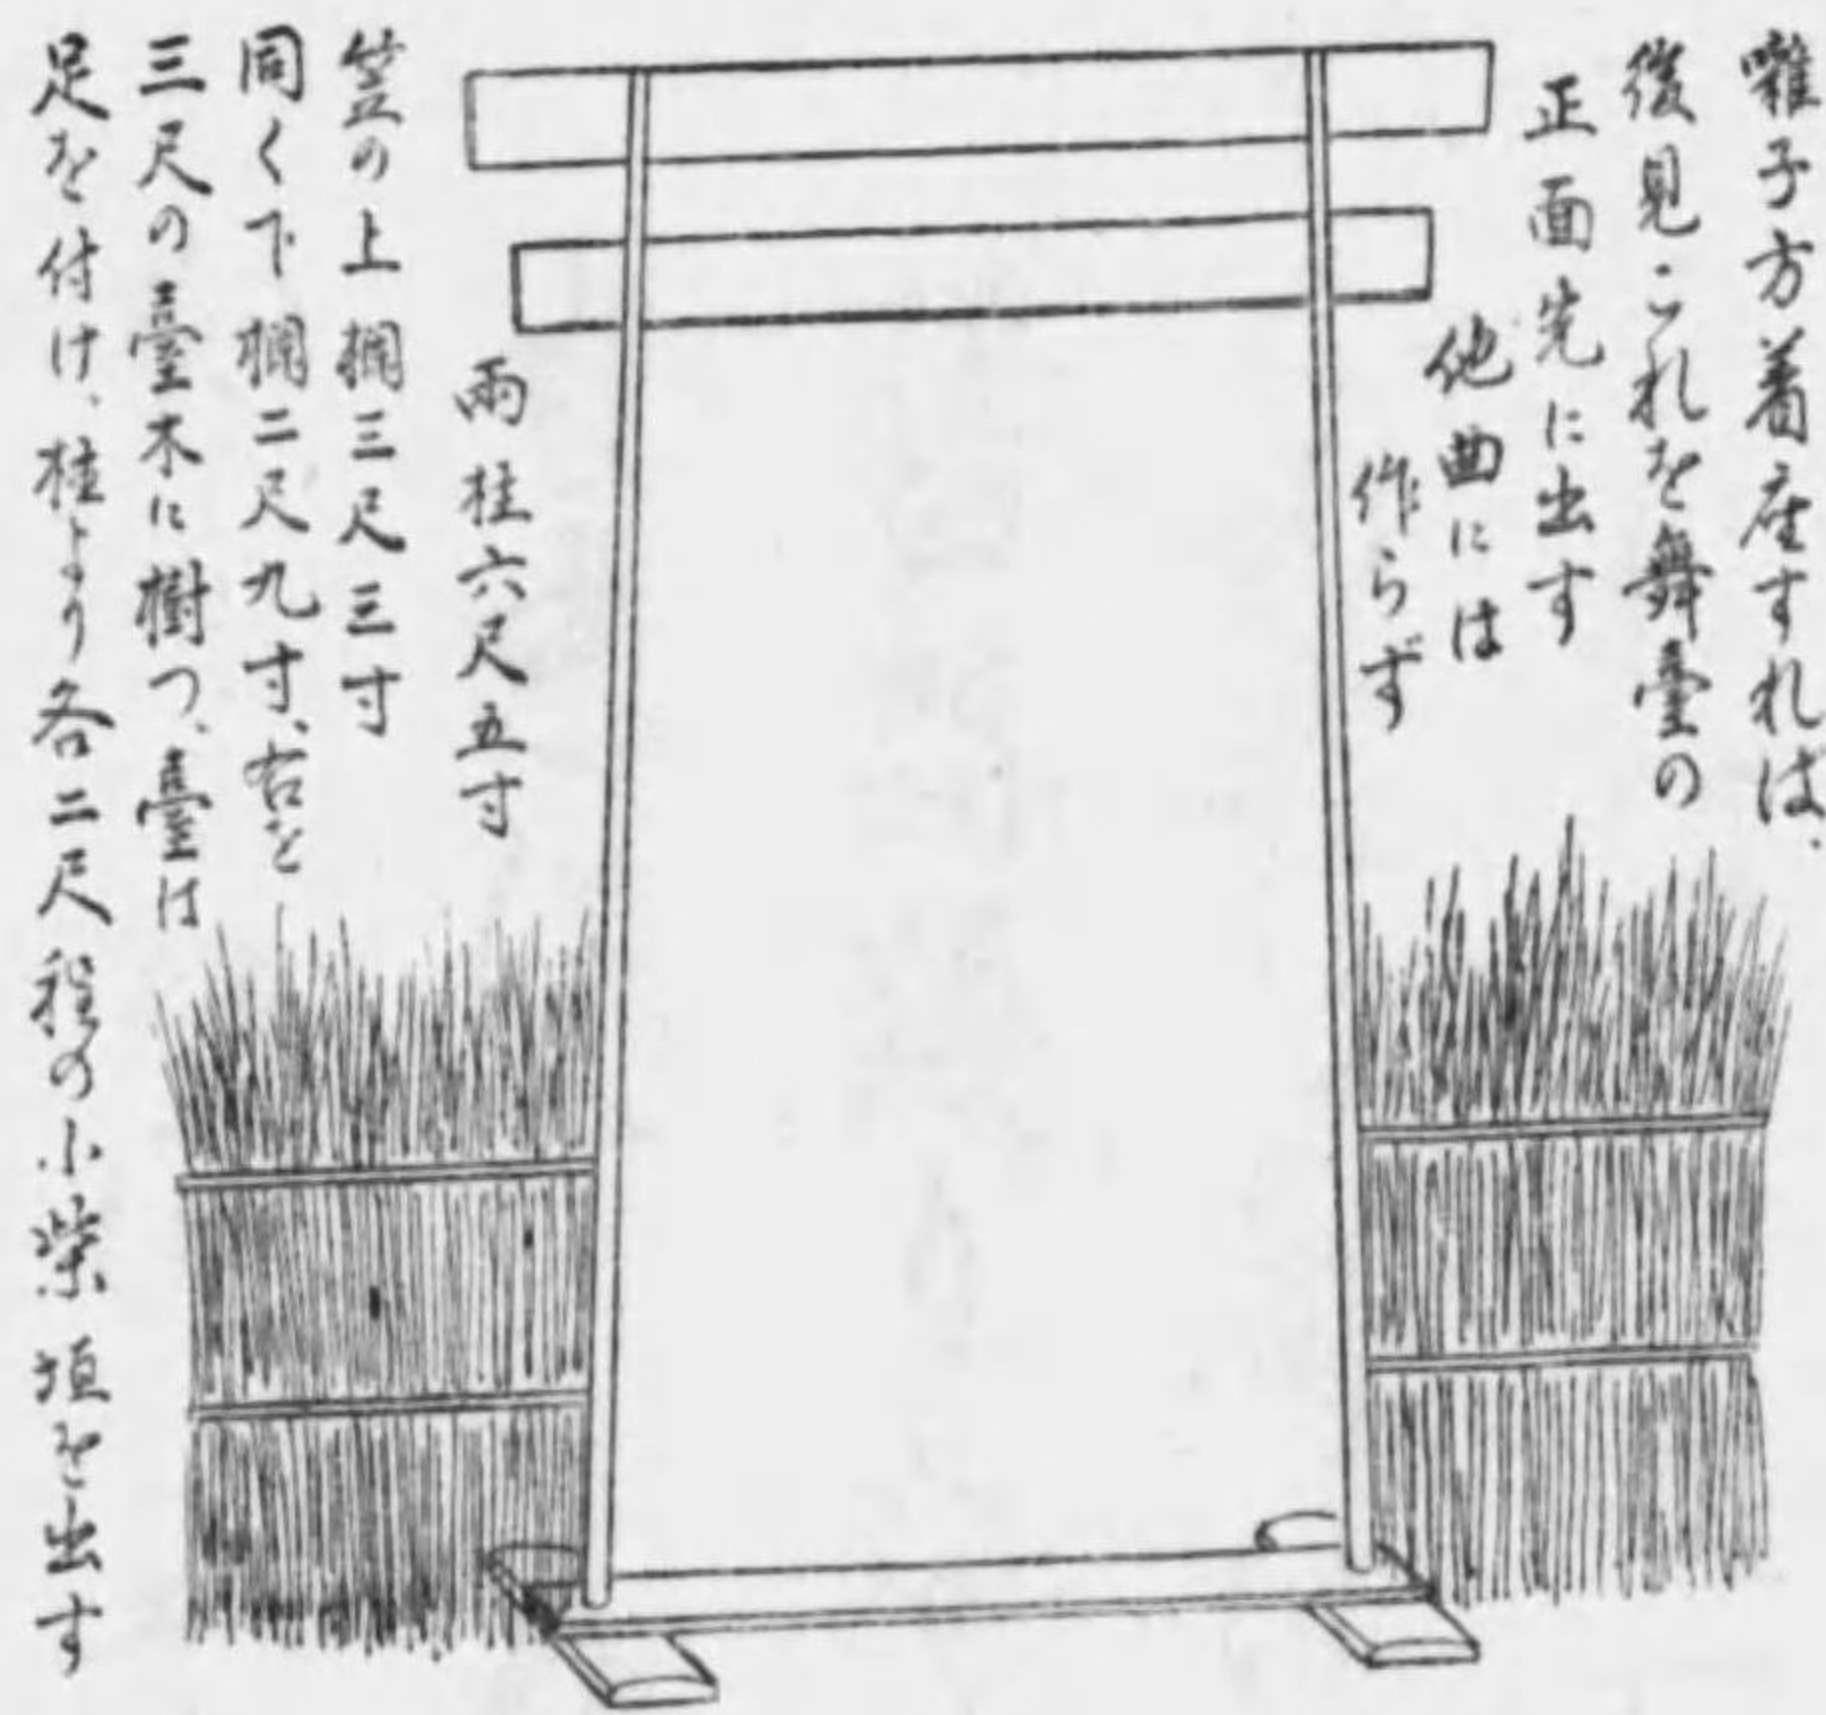 囃子方着座すれば、
後見これを舞臺の
正面先に出す
他曲には
作らず
兩柱六尺五寸
笠の上橺三尺三寸
同く下橺二尺九寸、右を
三尺の臺木に樹つ、臺は
足を付け、柱より各二尺程の小柴垣を出す